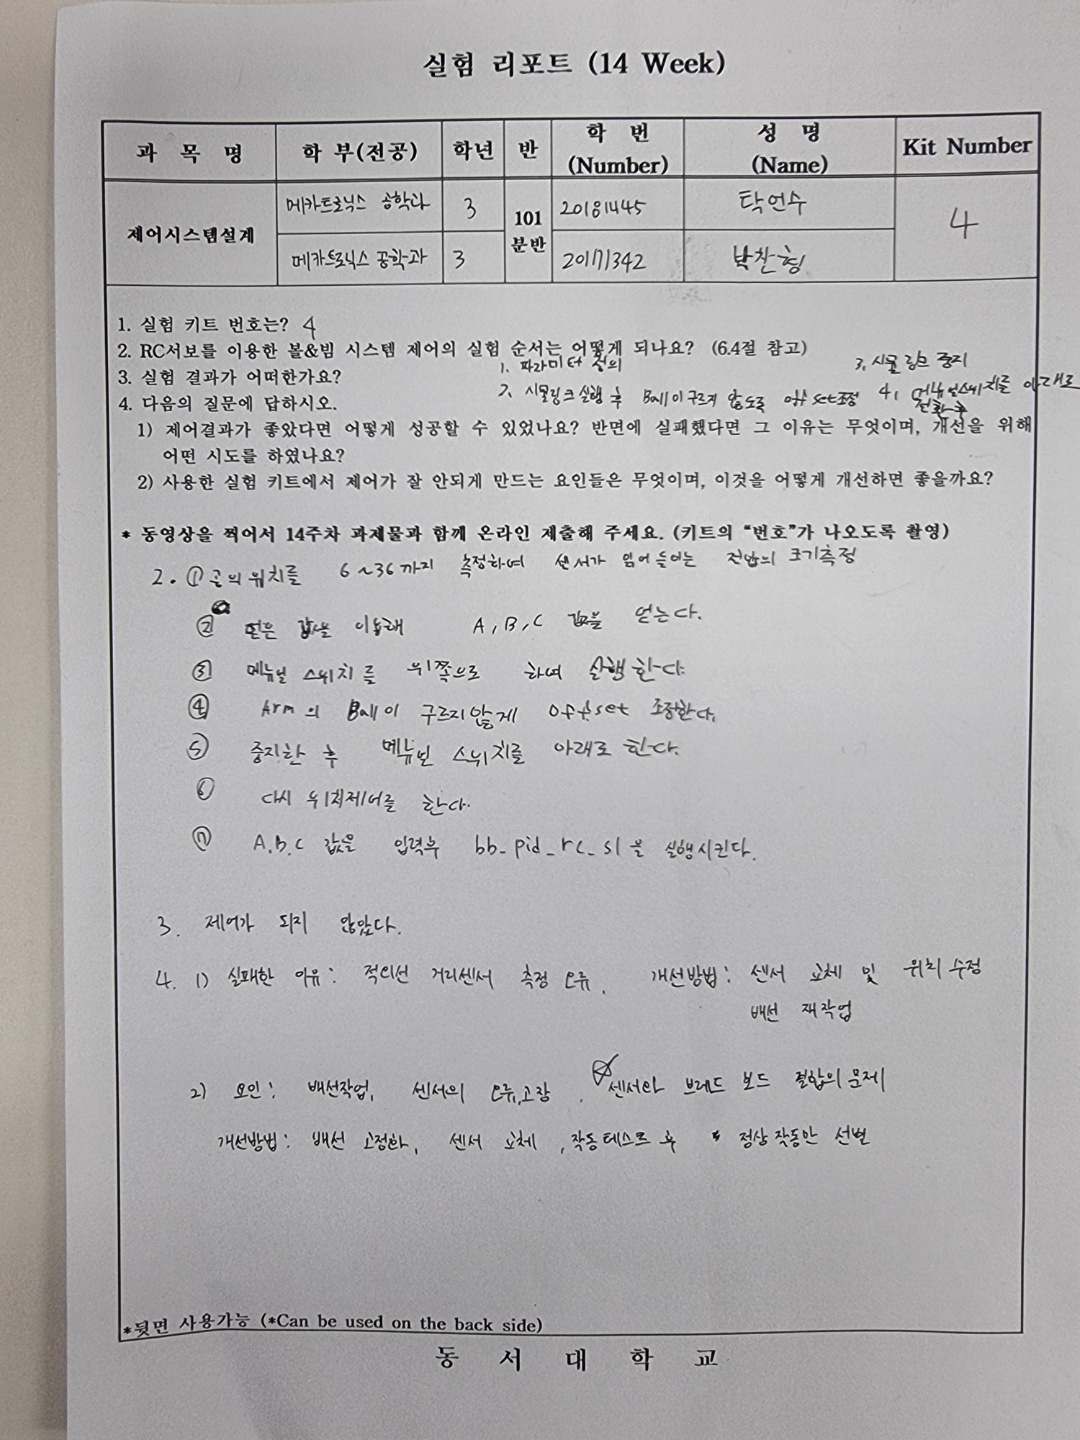 실험 리포트 (14 Week)
과 목 명 학 부(전공) 학년 반 학 번 (Number) 성 명 (Name) Kit Number
제어시스템설계 메카트로닉스 공학과 3 101 분반 20181445 탁언수 4
메카트로닉스 공학과 3 20171342 박찬형
1. 실험 키트 번호는? 4
2. RC서보를 이용한 볼&빔 시스템 제어의 실험 순서는 어떻게 되나요? (6.4절 참고)
1. 파라미터 정의 3. 시뮬링크 중지
3. 실험 결과가 어떠한가요?
2. 시뮬링크 실행 후 Ball이 구르지 않도록 offset조정 4. 메뉴얼스위치를 아래로 전환 후
4. 다음의 질문에 답하시오.
1) 제어결과가 좋았다면 어떻게 성공할 수 있었나요? 반면에 실패했다면 그 이유는 무엇이며, 개선을 위해
어떤 시도를 하였나요?
2) 사용한 실험 키트에서 제어가 잘 안되게 만드는 요인들은 무엇이며, 이것을 어떻게 개선하면 좋을까요?
* 동영상을 찍어서 14주차 과제물과 함께 온라인 제출해 주세요. (키트의 "번호"가 나오도록 촬영)
2. ① 공의 위치를 6~36까지 측정하여 센서가 읽어 들이는 전압의 크기측정
② 얻은 값을 이용해 A, B, C 값을 얻는다.
③ 메뉴얼 스위치를 위쪽으로 하여 실행한다.
④ Arm의 Ball이 구르지않게 offset 조정한다.
⑤ 중지한 후 메뉴얼 스위치를 아래로 한다.
⑥ 다시 위치제어를 한다.
⑦ A.B.C 값을 입력후 bb_pid_rc_sl을 실행시킨다.
3. 제어가 되지 않았다.
4. 1) 실패한 이유: 적외선 거리센서 측정 오류. 개선방법: 센서 교체 및 위치 수정
배선 재작업
2) 요인: 배선작업, 센서의 오류,고장. 센서와 브레드 보드 결합의 문제
개선방법: 배선 고정화, 센서 교체, 작동테스트 후 정상작동만 선별
*뒷면 사용가능 (*Can be used on the back side)
동 서 대 학 교